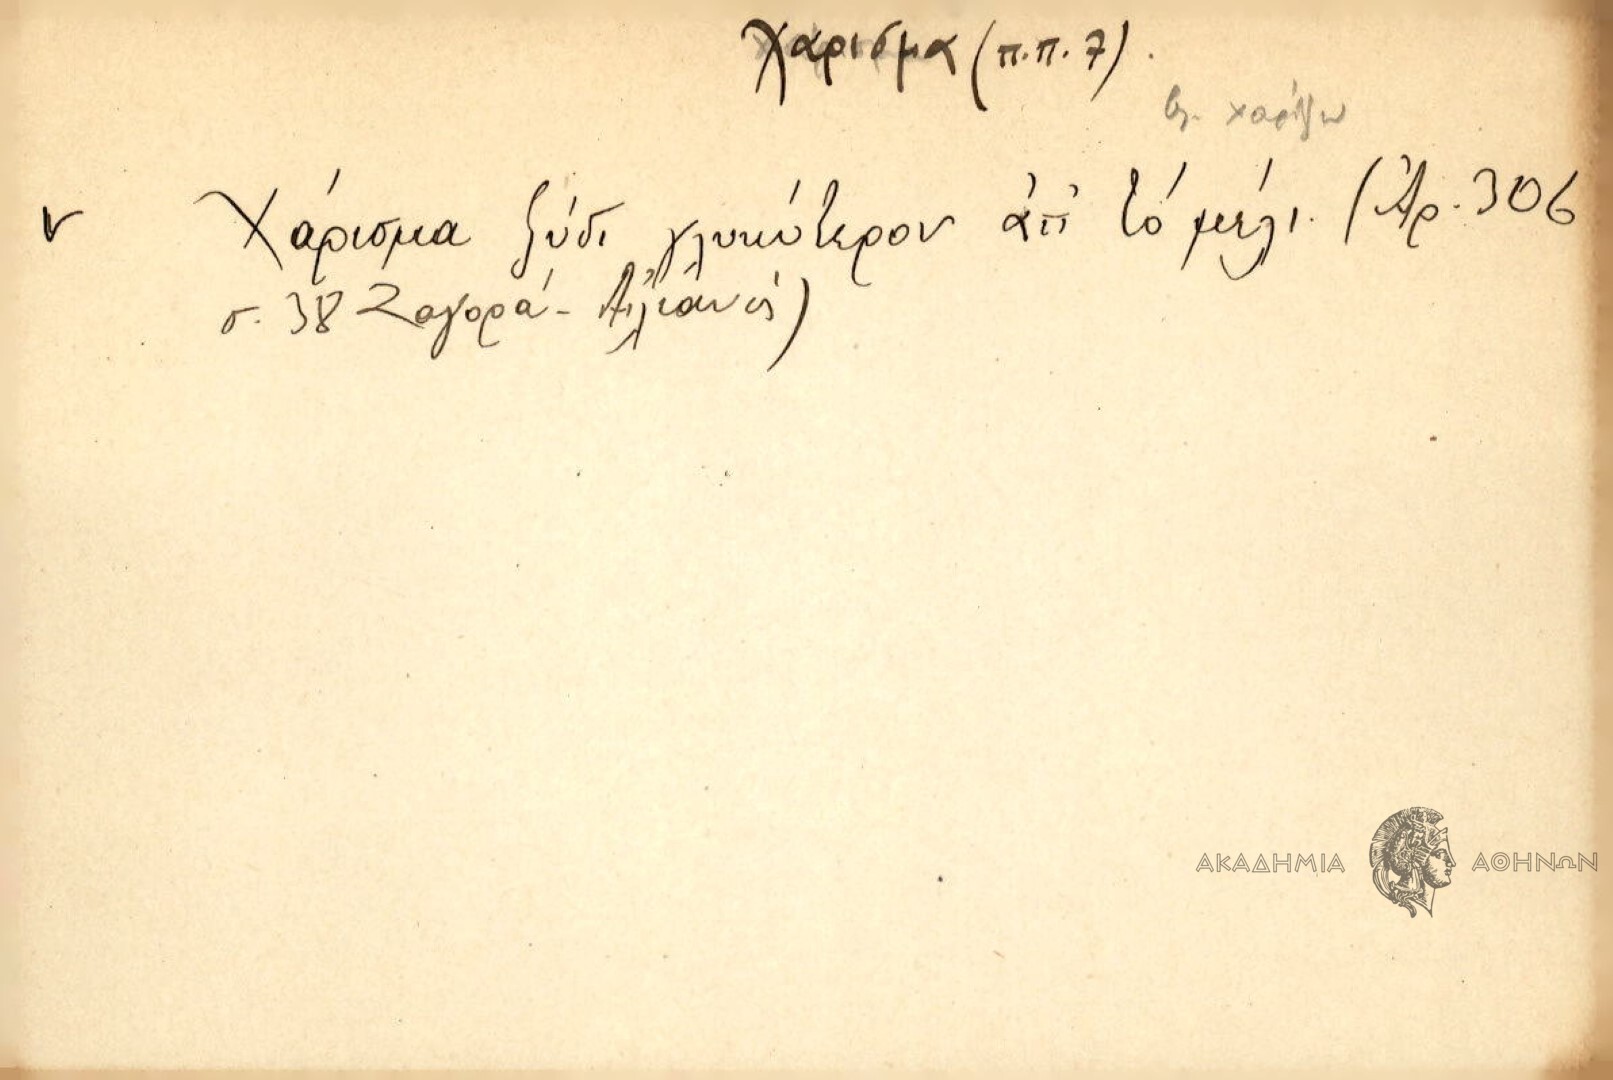 Χάρισμα (π.π. 7).
βλ. χαρίζω
Χάρισμα ξύδι γλυκύτερον ἀπ' τό μέλι. (Ἀρ. 306
σ. 38 Ζαγορά -
ΑΚΑΔΗΜΙΑ ΑΘΗΝΩΝ